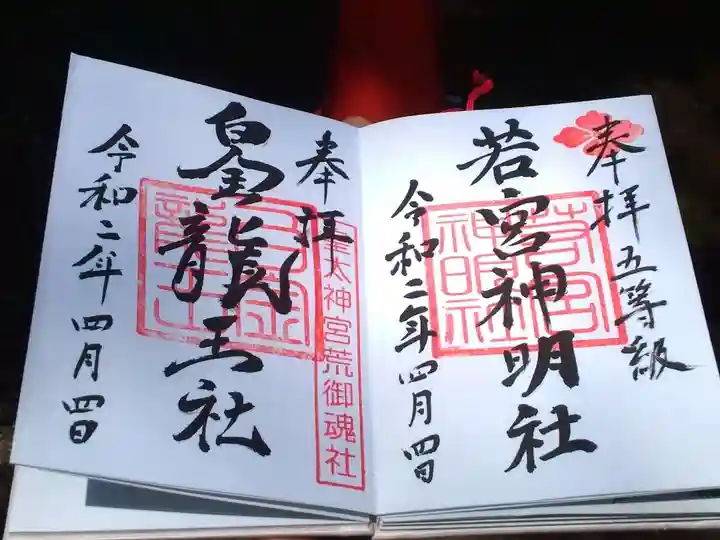 奉拝 五等級
若宮神明社
若宮
神明社
令和二年四月四日
奉拝
皇太神宮荒御魂社
白金龍王社
令和二年四月四日